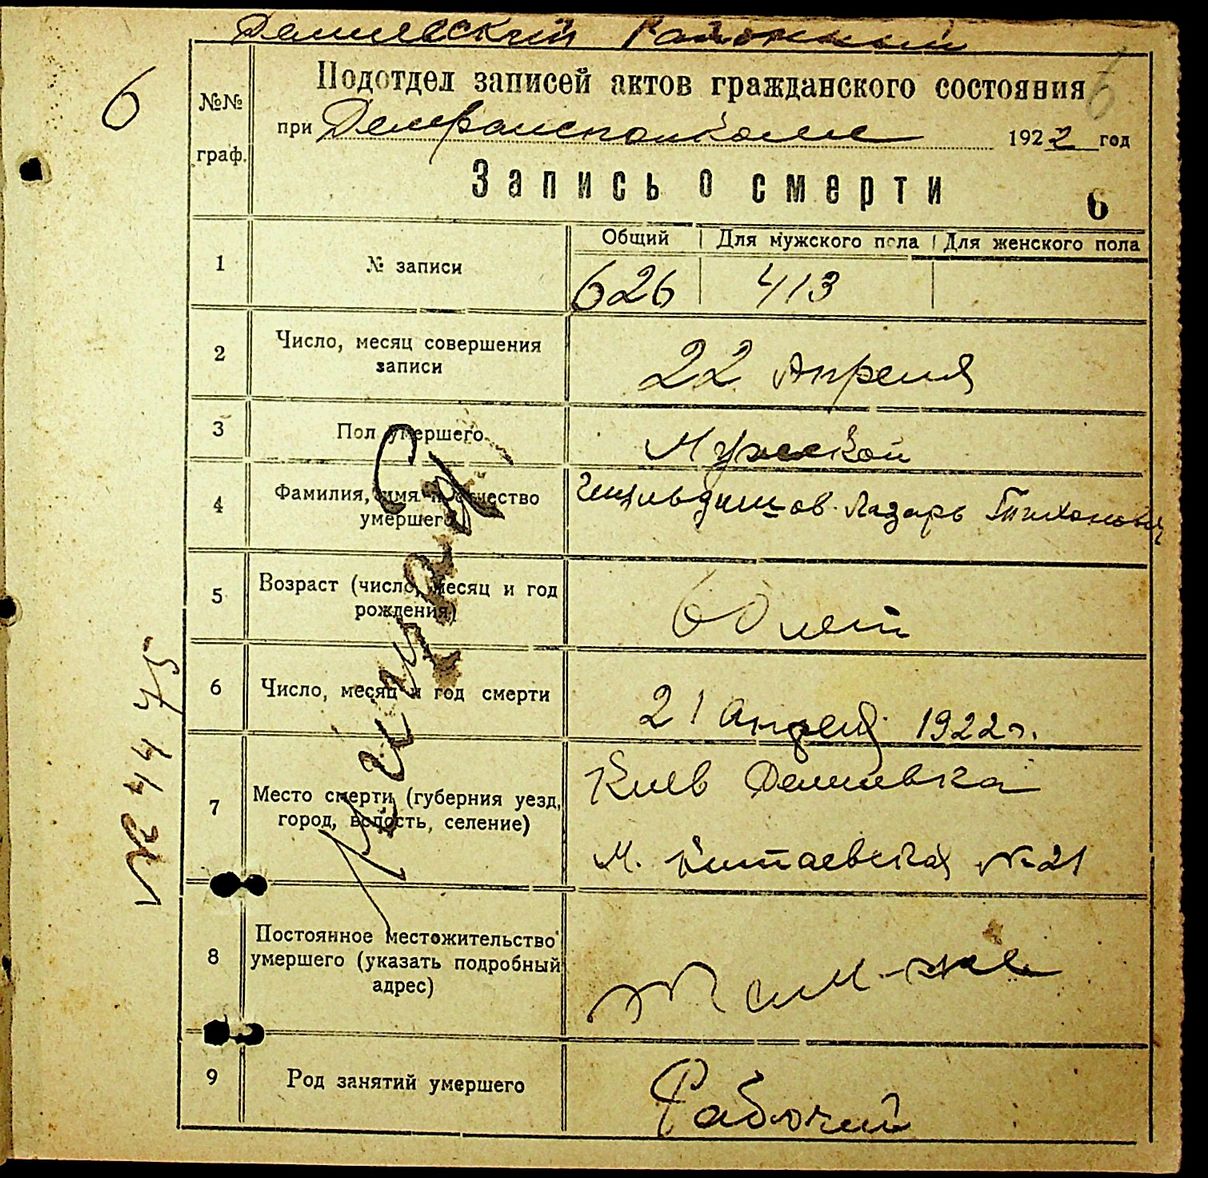 Демиевский Районный
6
Подотдел записей актов гражданского состояния
6
при Демрайисполкоме 1922 год
№№ граф.
Запись о смерти
6
Общий Для мужского пола Для женского пола
1 № записи 626 413
2 Число, месяц совершения записи 22 Апреля
3 Пол умершего Мужской
4 Фамилия, имя и отчество умершего Лазарь Тихонович
5 Возраст (число, месяц и год рождения) 60 лет
6 Число, месяц и год смерти 21 апреля 1922 г.
7 Место смерти (губерния уезд, город, волость, селение) Киев Демиевка
М. Китаевская № 21
8 Постоянное местожительство умершего (указать подробный адрес) там-же
9 Род занятий умершего Рабочий
№ 4475